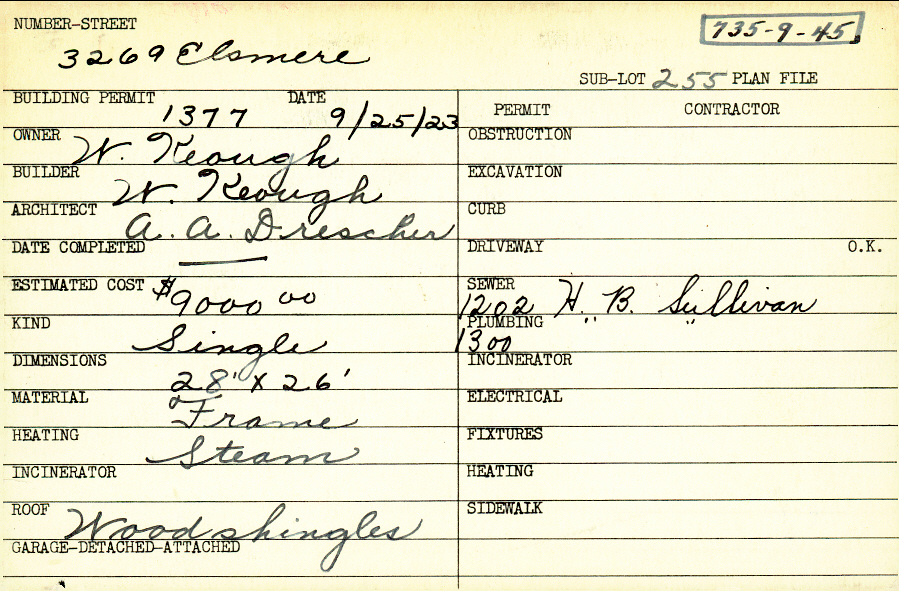 NUMBER-STREET
735-9-45
3269 Elsmere
SUB-LOT 255 PLAN FILE
BUILDING PERMIT 1377 DATE 9/25/23
PERMIT CONTRACTOR
OWNER W. Keough
OBSTRUCTION
BUILDER W. Keough
EXCAVATION
ARCHITECT A. A. Drescher
CURB
DATE COMPLETED —
DRIVEWAY O.K.
ESTIMATED COST $9000 00
SEWER 1202 H. B. Sullivan
KIND Single
PLUMBING 1300 " "
DIMENSIONS 28' X 26'
INCINERATOR
MATERIAL Frame
ELECTRICAL
HEATING Steam
FIXTURES
INCINERATOR
HEATING
ROOF Wood shingles
SIDEWALK
GARAGE-DETACHED-ATTACHED